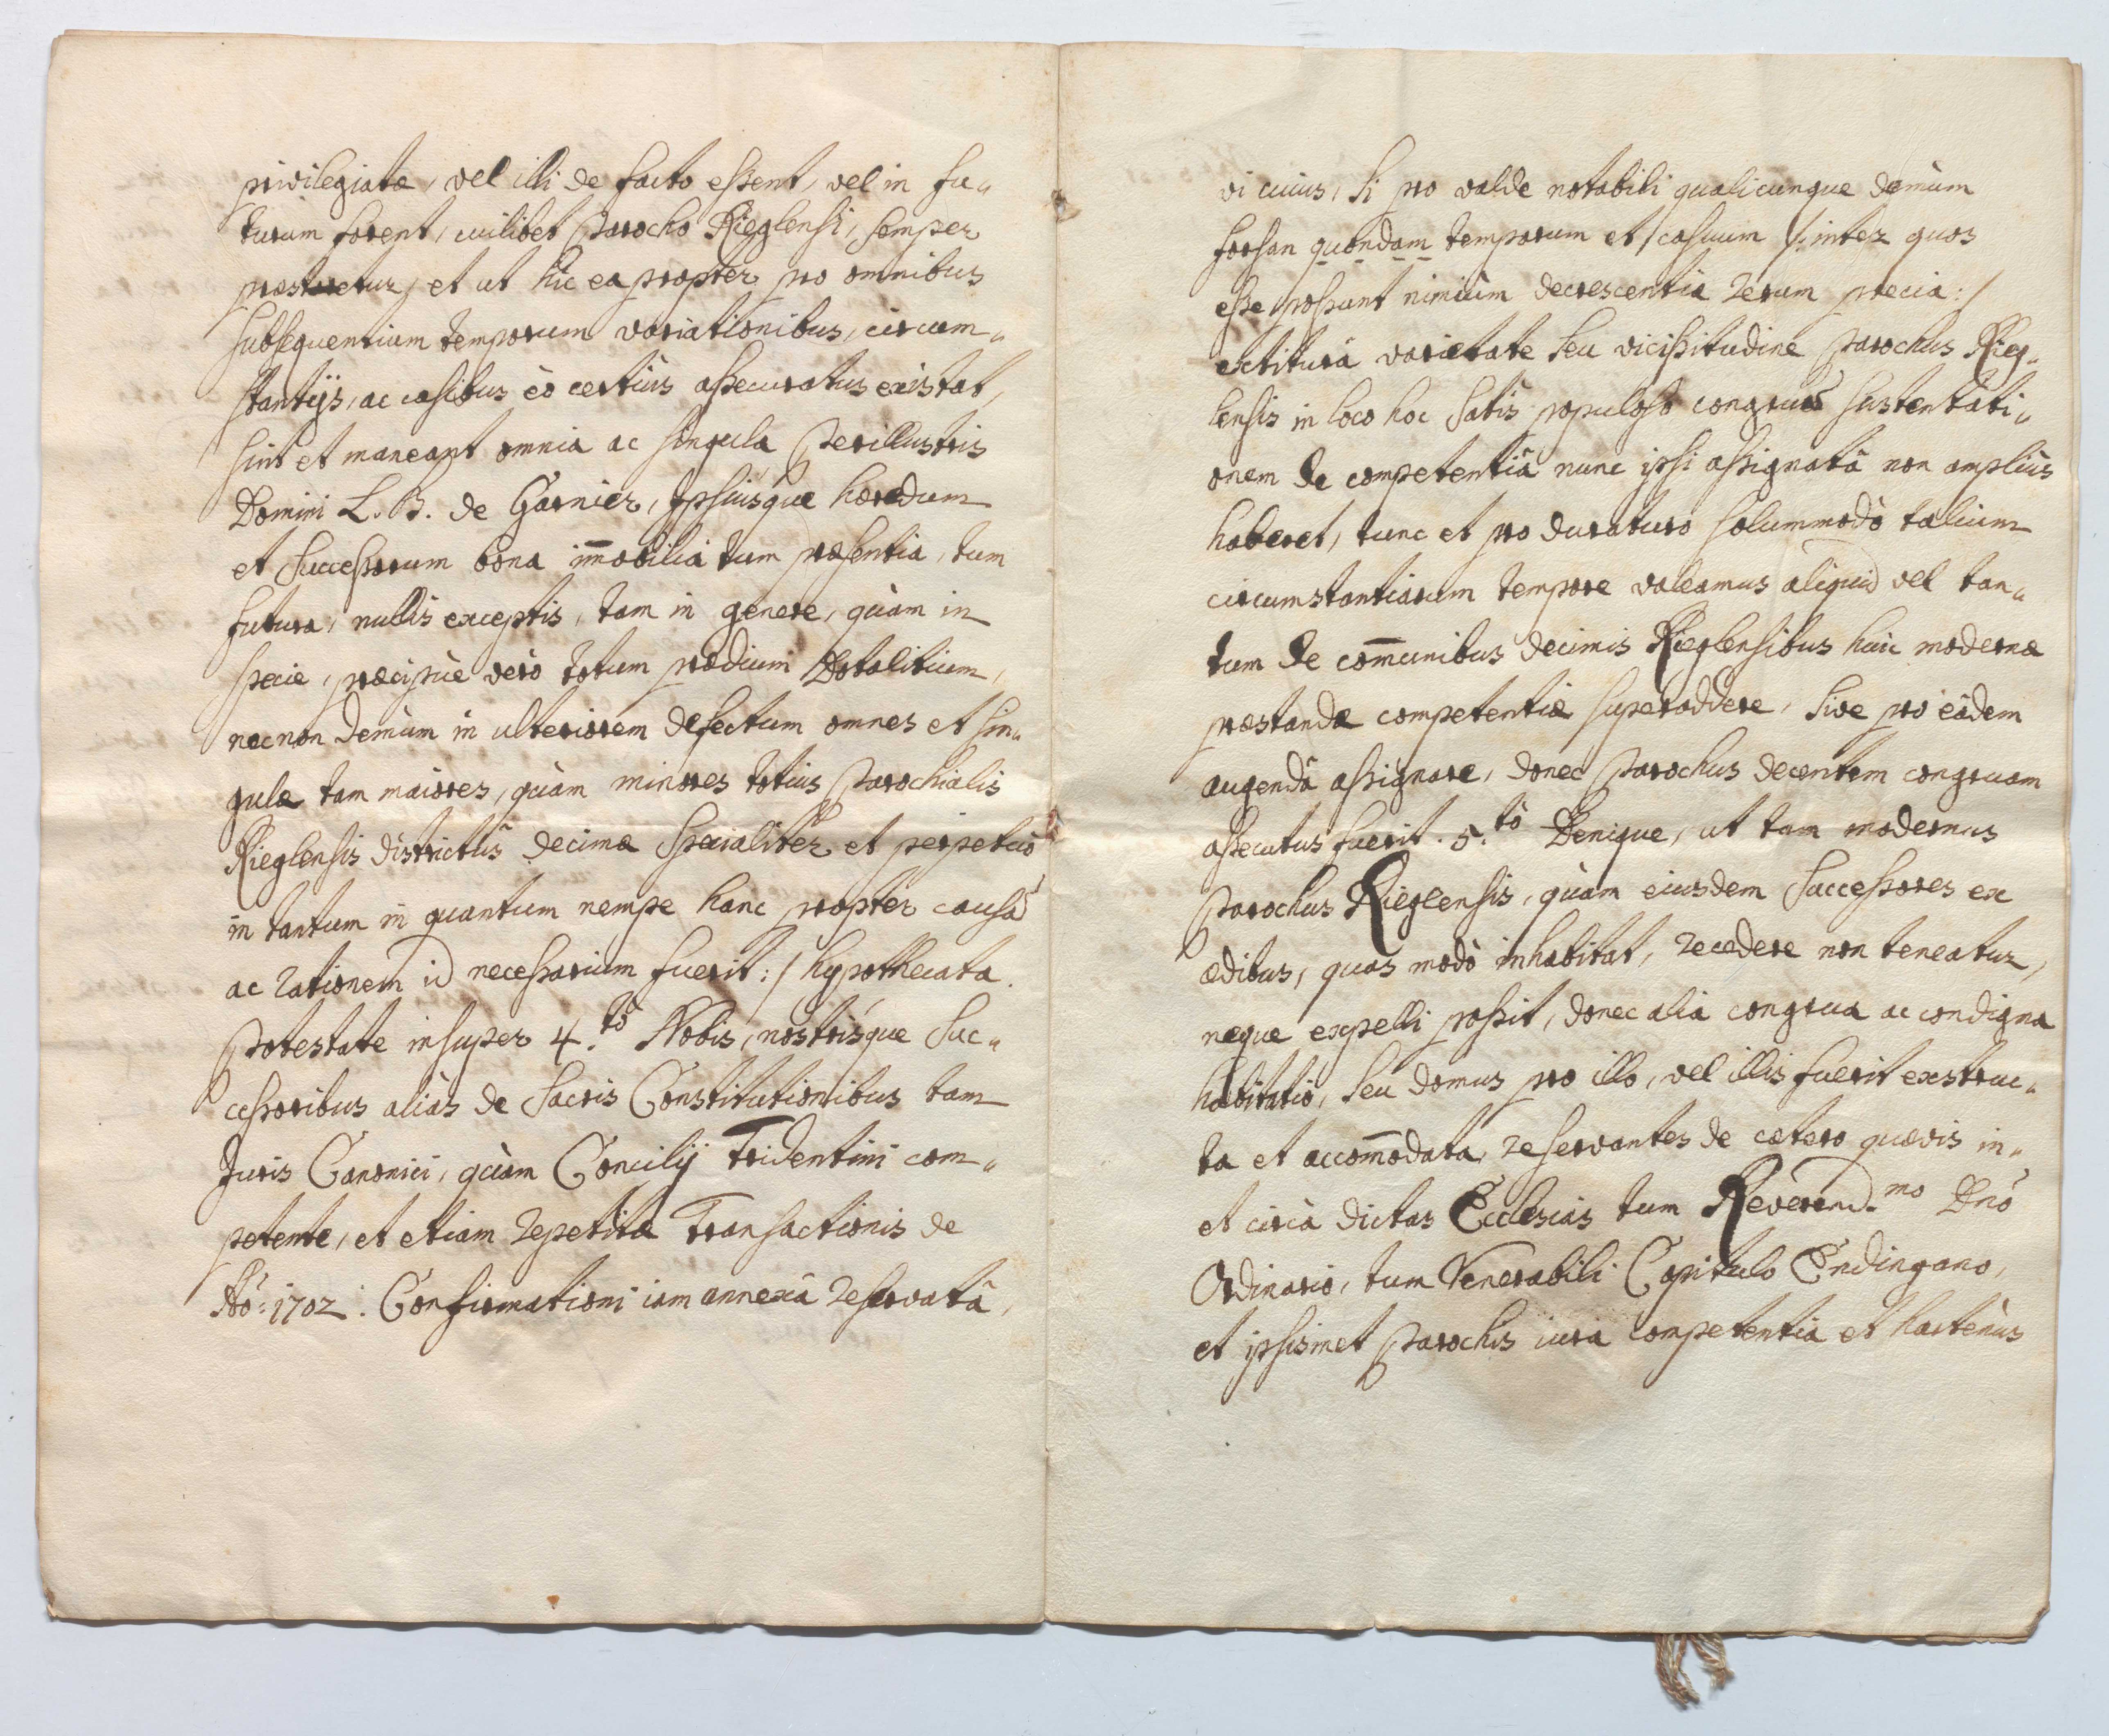 privilegiatæ, vel illi de facto essent, vel in fu„
turum forent, cuilibet Parocho Rieglensi, semper
præstaretur, et ut hic ea propter pro omnibus
subsequentium temporum variationibus, circum„
stantijs, ac casibus èo certiùs assecuratus existat,
sint et maneant omnia ac singula Perillustris
Domini L. B. de Garnier, Ipsiusque hæredum
et Successorum bona im̄obilia tum præsentia, tum
futura, nullis exceptis, tam in genere, quàm in
specie, præcipùe verò totum prædium Dotalitium,
necnon demùm in ulteriorem defectum omnes et sin„
gulæ tam maiores, quàm minores totius Parochialis
Rieglensis districtûs decimæ specialiter et perpetuò
in tantum in quantum nempe hanc propter causã
ac rationem id necessarium fuerit :/ hypothecata.
Potestate insuper 4.tò Nobis, nostrisque Suc„
cessoribus aliàs de Sacris Constitutionibus tam
Juris Canonici, quàm Concilij Tridentini com„
petente, et etiam repetitæ Transactionis de
Aõ: 1702. Confirmationi iam annexâ reservatâ,
vi cuius, si pro valde notabili qualicunque demùm
forsan quondam temporum et casuum /: inter quos
esse possunt nimiùm decrescentia rerum precia :/
extiturâ varietate seu vicissitudine Parochus Rieg„
lensis in loco hoc satis populoso congruã sustentati„
onem de competentiâ nunc ipsi assignatâ non ampliùs
haberet, tunc et pro duraturo solummodò talium
circumstantiarum tempore valeamus aliquid vel tan„
tum de com̄unibus decimis Rieglensibus huic modernæ
præstandæ competentiæ superaddere, sive pro eâdem
augendâ assignare, donec Parochus decentem congruam
assecutus fuerit. 5.tò Denique, ut tam modernus
Parochus Rieglensis, quàm eiusdem Successores ex
ædibus, quas modò inhabitat, recedere non teneatur,
neque expelli possit, donec alia congrua ac condigna
habitatio, seu domus pro illo, vel illis fuerit exstruc„
ta et accom̄odata, reservantes de cætero quævis in„
et circà dictas Ecclesias tum Reverend.mo Dnõ
Ordinario, tum Venerabili Capitulo Endingano,
et ipsismet Parochis iura competentia et hactenùs